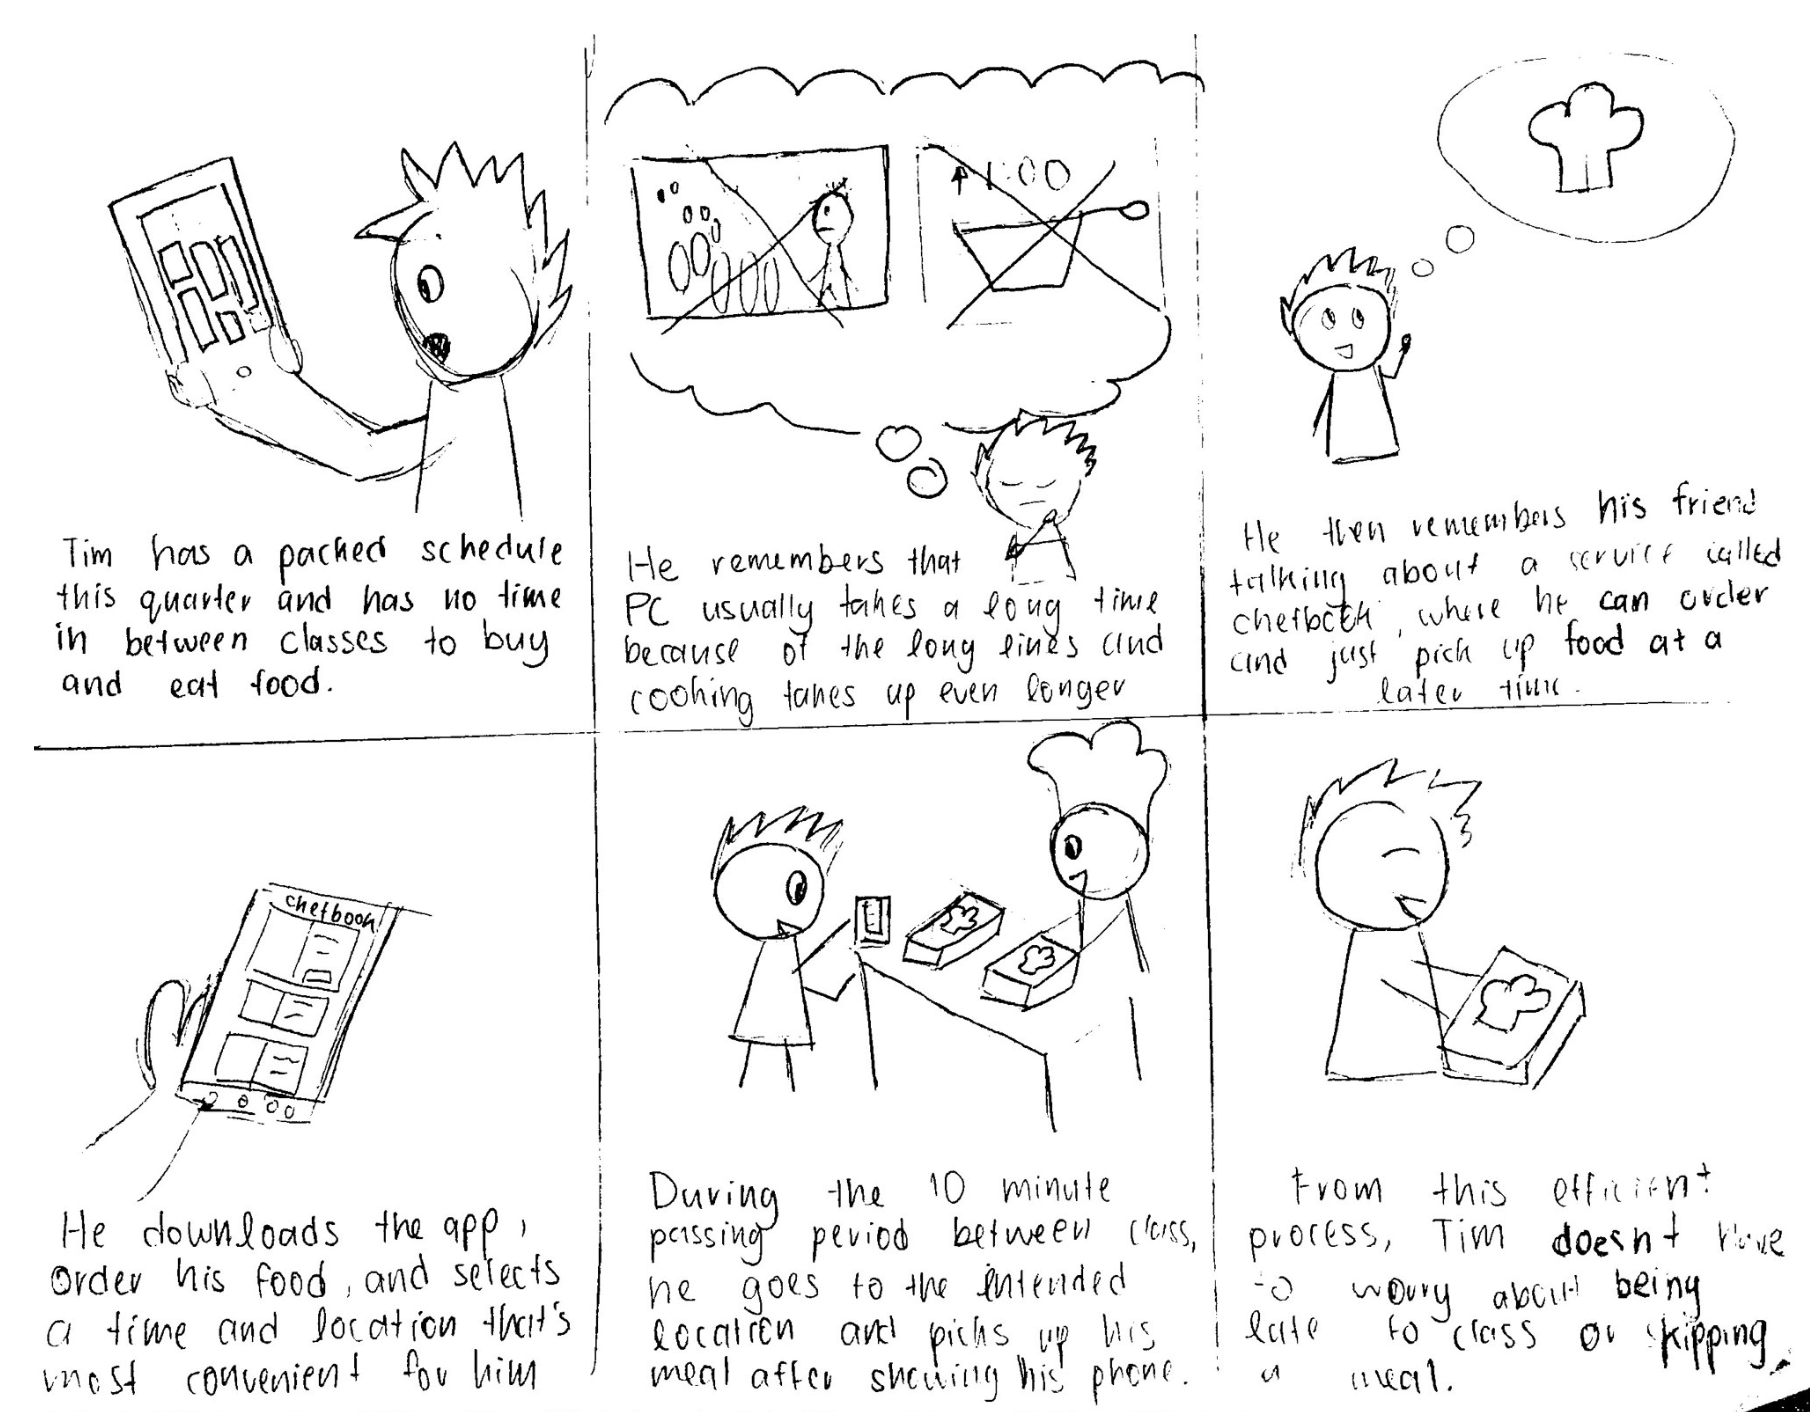 1:00
Tim has a packed schedule
this quarter and has no time
in between classes to buy
and eat food.
He remembers that
PC usually takes a long time
because of the long lines and
cooking takes up even longer
He then remembers his friend
talking about a service called
chefbook, where he can order
and just pick up food at a
later time.
chefbook
He downloads the app,
order his food, and selects
a time and location that's
most convenient for him
During the 10 minute
passing period between class,
he goes to the intended
location and picks up his
meal after showing his phone.
From this efficient
process, Tim doesnt have
to worry about being
late to class or skipping
a meal.